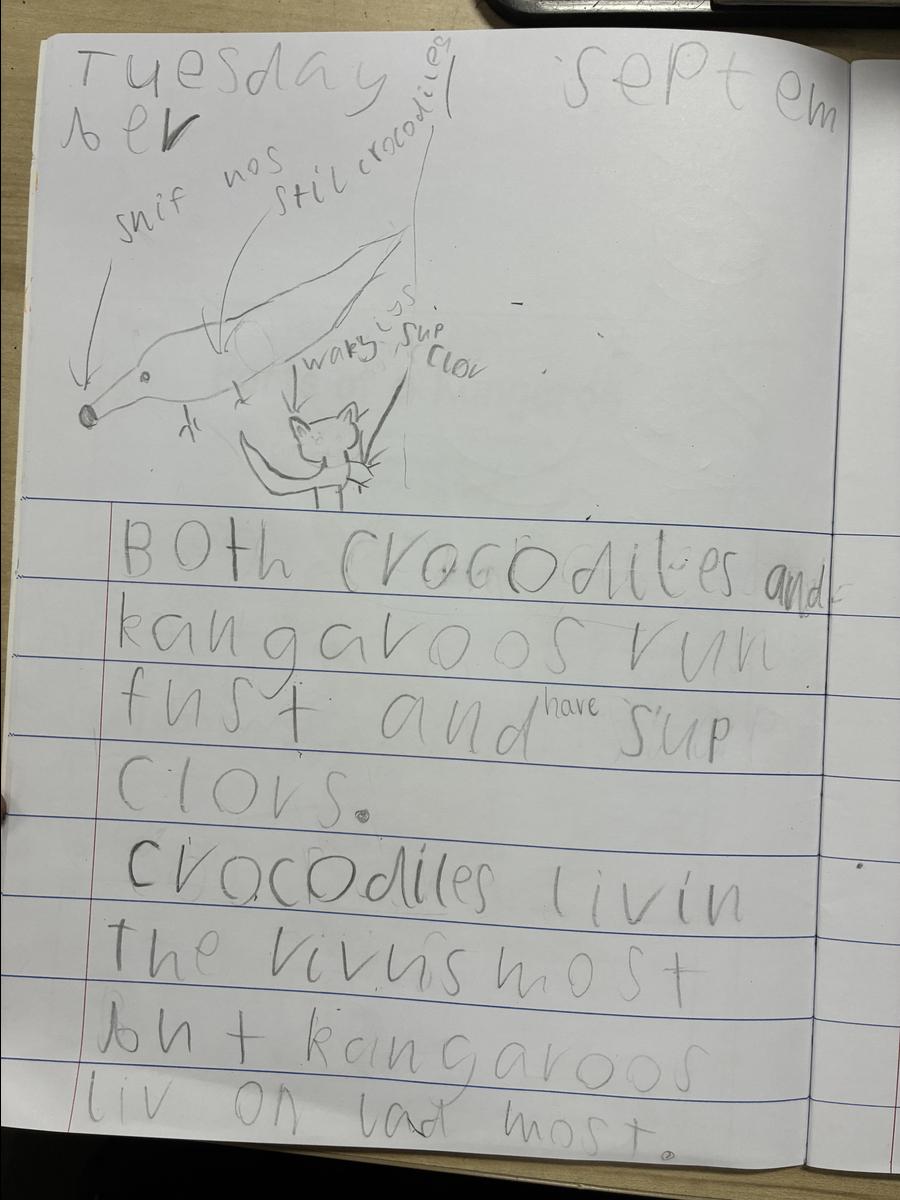 Tuesday septem
ber
snif nos
stil crocodiles
waky iys
sup
clov
BOth crocodiles and
kangaroos run
fust and have sup
clovs.
crocodiles liv in
the rivus most
but kangaroos
liv on lad most.